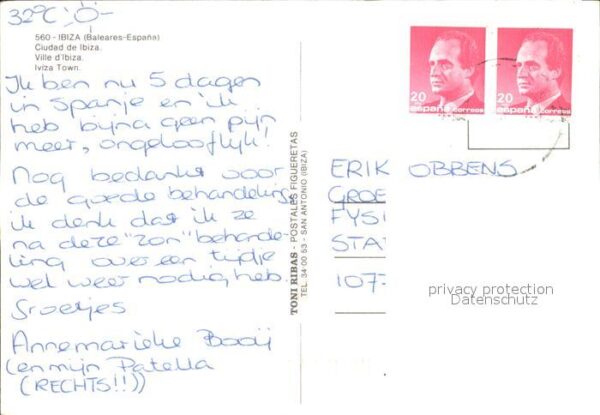 32°C
560 - IBIZA (Baleares-España)
Ciudad de Ibiza.
Ville d'Ibiza.
Iviza Town.
Ik ben nu 5 dagen
in Spanje en ik
heb bijna geen pijn
meer, ongelooflijk!
Nog bedankt voor
de goede behandeling
ik denk dat ik ze
na deze "zon" behande-
ling over een tijdje
wel weer nodig heb.
Groetjes
Annemarieke Booij
(en mijn Patella
(RECHTS!!))
TONI RIBAS - POSTALES FIGUERETAS
TEL. 34 00 53 - SAN ANTONIO (IBIZA)
20
españa correos
20
españa correos
ERIK OBBENS
GROE
FYSI
STA
107
privacy protection
Datenschutz